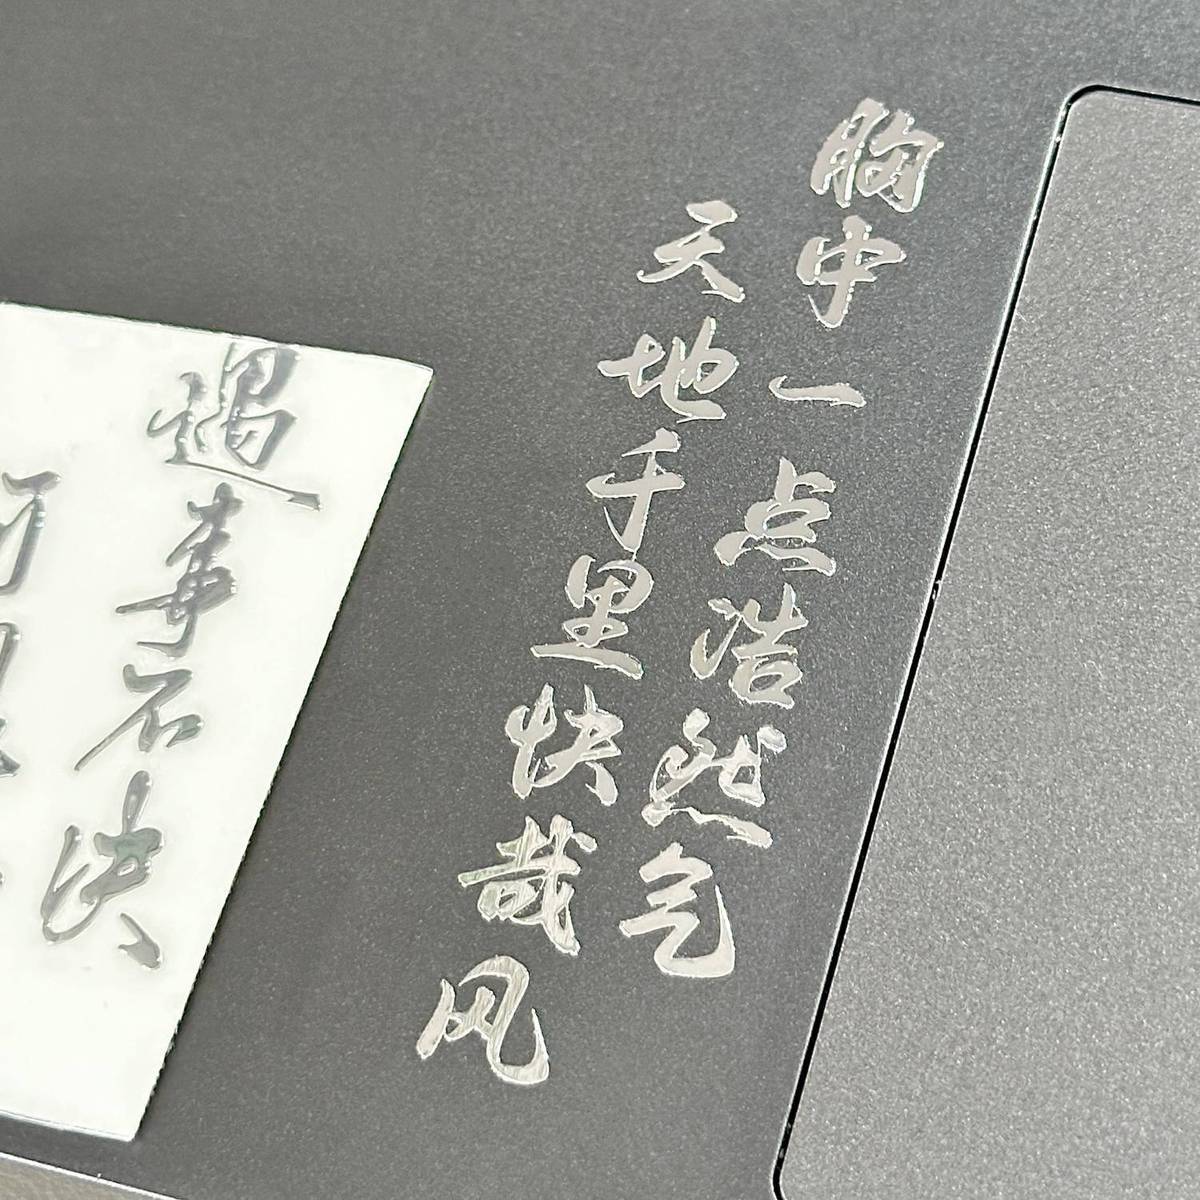 胸中一点浩然气
天地千里快哉风
遇事不决